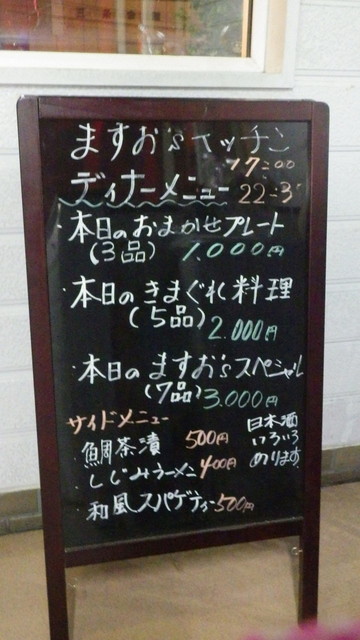 ますお'sキッチン
17:00
ディナーメニュー 22:3
・本日のおまかせプレート
(3品) 1.000円
・本日のきまぐれ料理
(5品) 2.000円
・本日のますお'sスペシャル
(7品) 3.000円
サイドメニュー
鯛茶漬 500円
・しじみラーメン 400円
・和風スパゲティー500円
日本酒
いろいろ
あります。